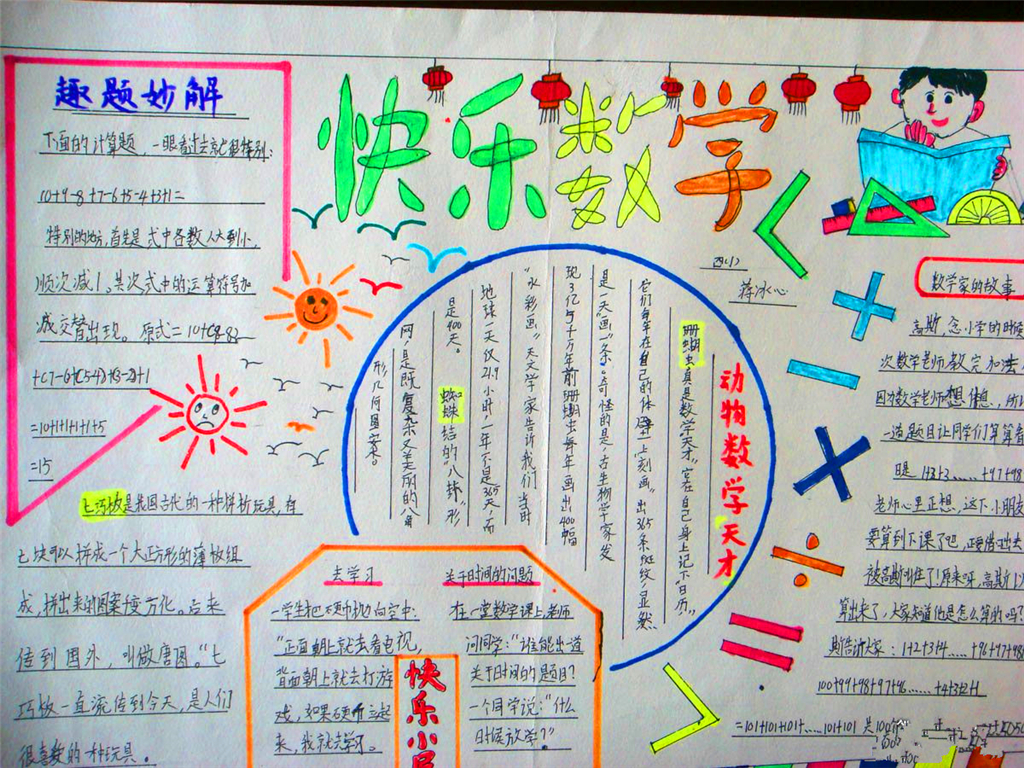 趣题妙解
下面的计算题，一眼看过去就很特别：
10+9-8+7-6+5-4+3+1=
特别的地方，首先是式中各数从大到小，
顺次减1。其次式中的运算符号加
减交替出现。原式=10+(9-8)
+(7-6)+(5-4)+(3-2)+1
=10+1+1+1+1+5
=15
七巧板是我国古代的一种拼析玩具，有
七块可以拼成一个大正方形的薄板组
成，拼出来的图案变变万化。后来
传到国外，叫做唐图。“七
巧板一直流传到今天，是人们
很喜爱的一种玩具。
快乐数学
四(1)
蒋冰心
动物数学天才
珊瑚虫真是数学天才，它在自己身上记下“日历”，
它们每年在自己的体壁上刻画出365条斑纹，显然
是一天“画”一条。奇怪的是，古生物学家发
现3亿5千万年前珊瑚虫每年画出400幅
“水彩画”。天文学家告诉我们，当时
地球一天仅21.9小时，一年不是365天，而
是400天。
蜘蛛结的“八卦”形
网，是既复杂又美丽的八角
形几何图案。
去学习
一学生把硬币抛向空中：
“正面朝上就去看电视，
背面朝上就去打游
戏，如果硬币立起
来，我就去学习。
快乐小屋
关于时间的问题
在一堂数学课上，老师
问同学：“谁能出一道
关于时间的题目？
一个同学说：“什么
时候放学？”
数学家的故事
高斯，念小学的时候
次数学老师教完加法
因为数学老师想休息，所以
一道题目让同学们算算看
目是 1+2+3……+97+98
老师心里正想，这下小朋友
要算到下课了吧，正要借口出去
被高斯叫住了！原来呀，高斯
算出来了，大家知道他是怎么算的吗？
斯告诉大家：1+2+3+4……+96+97+98
100+99+98+97+96……+4+3+2+1
=101+101+101+……101+101 共100个